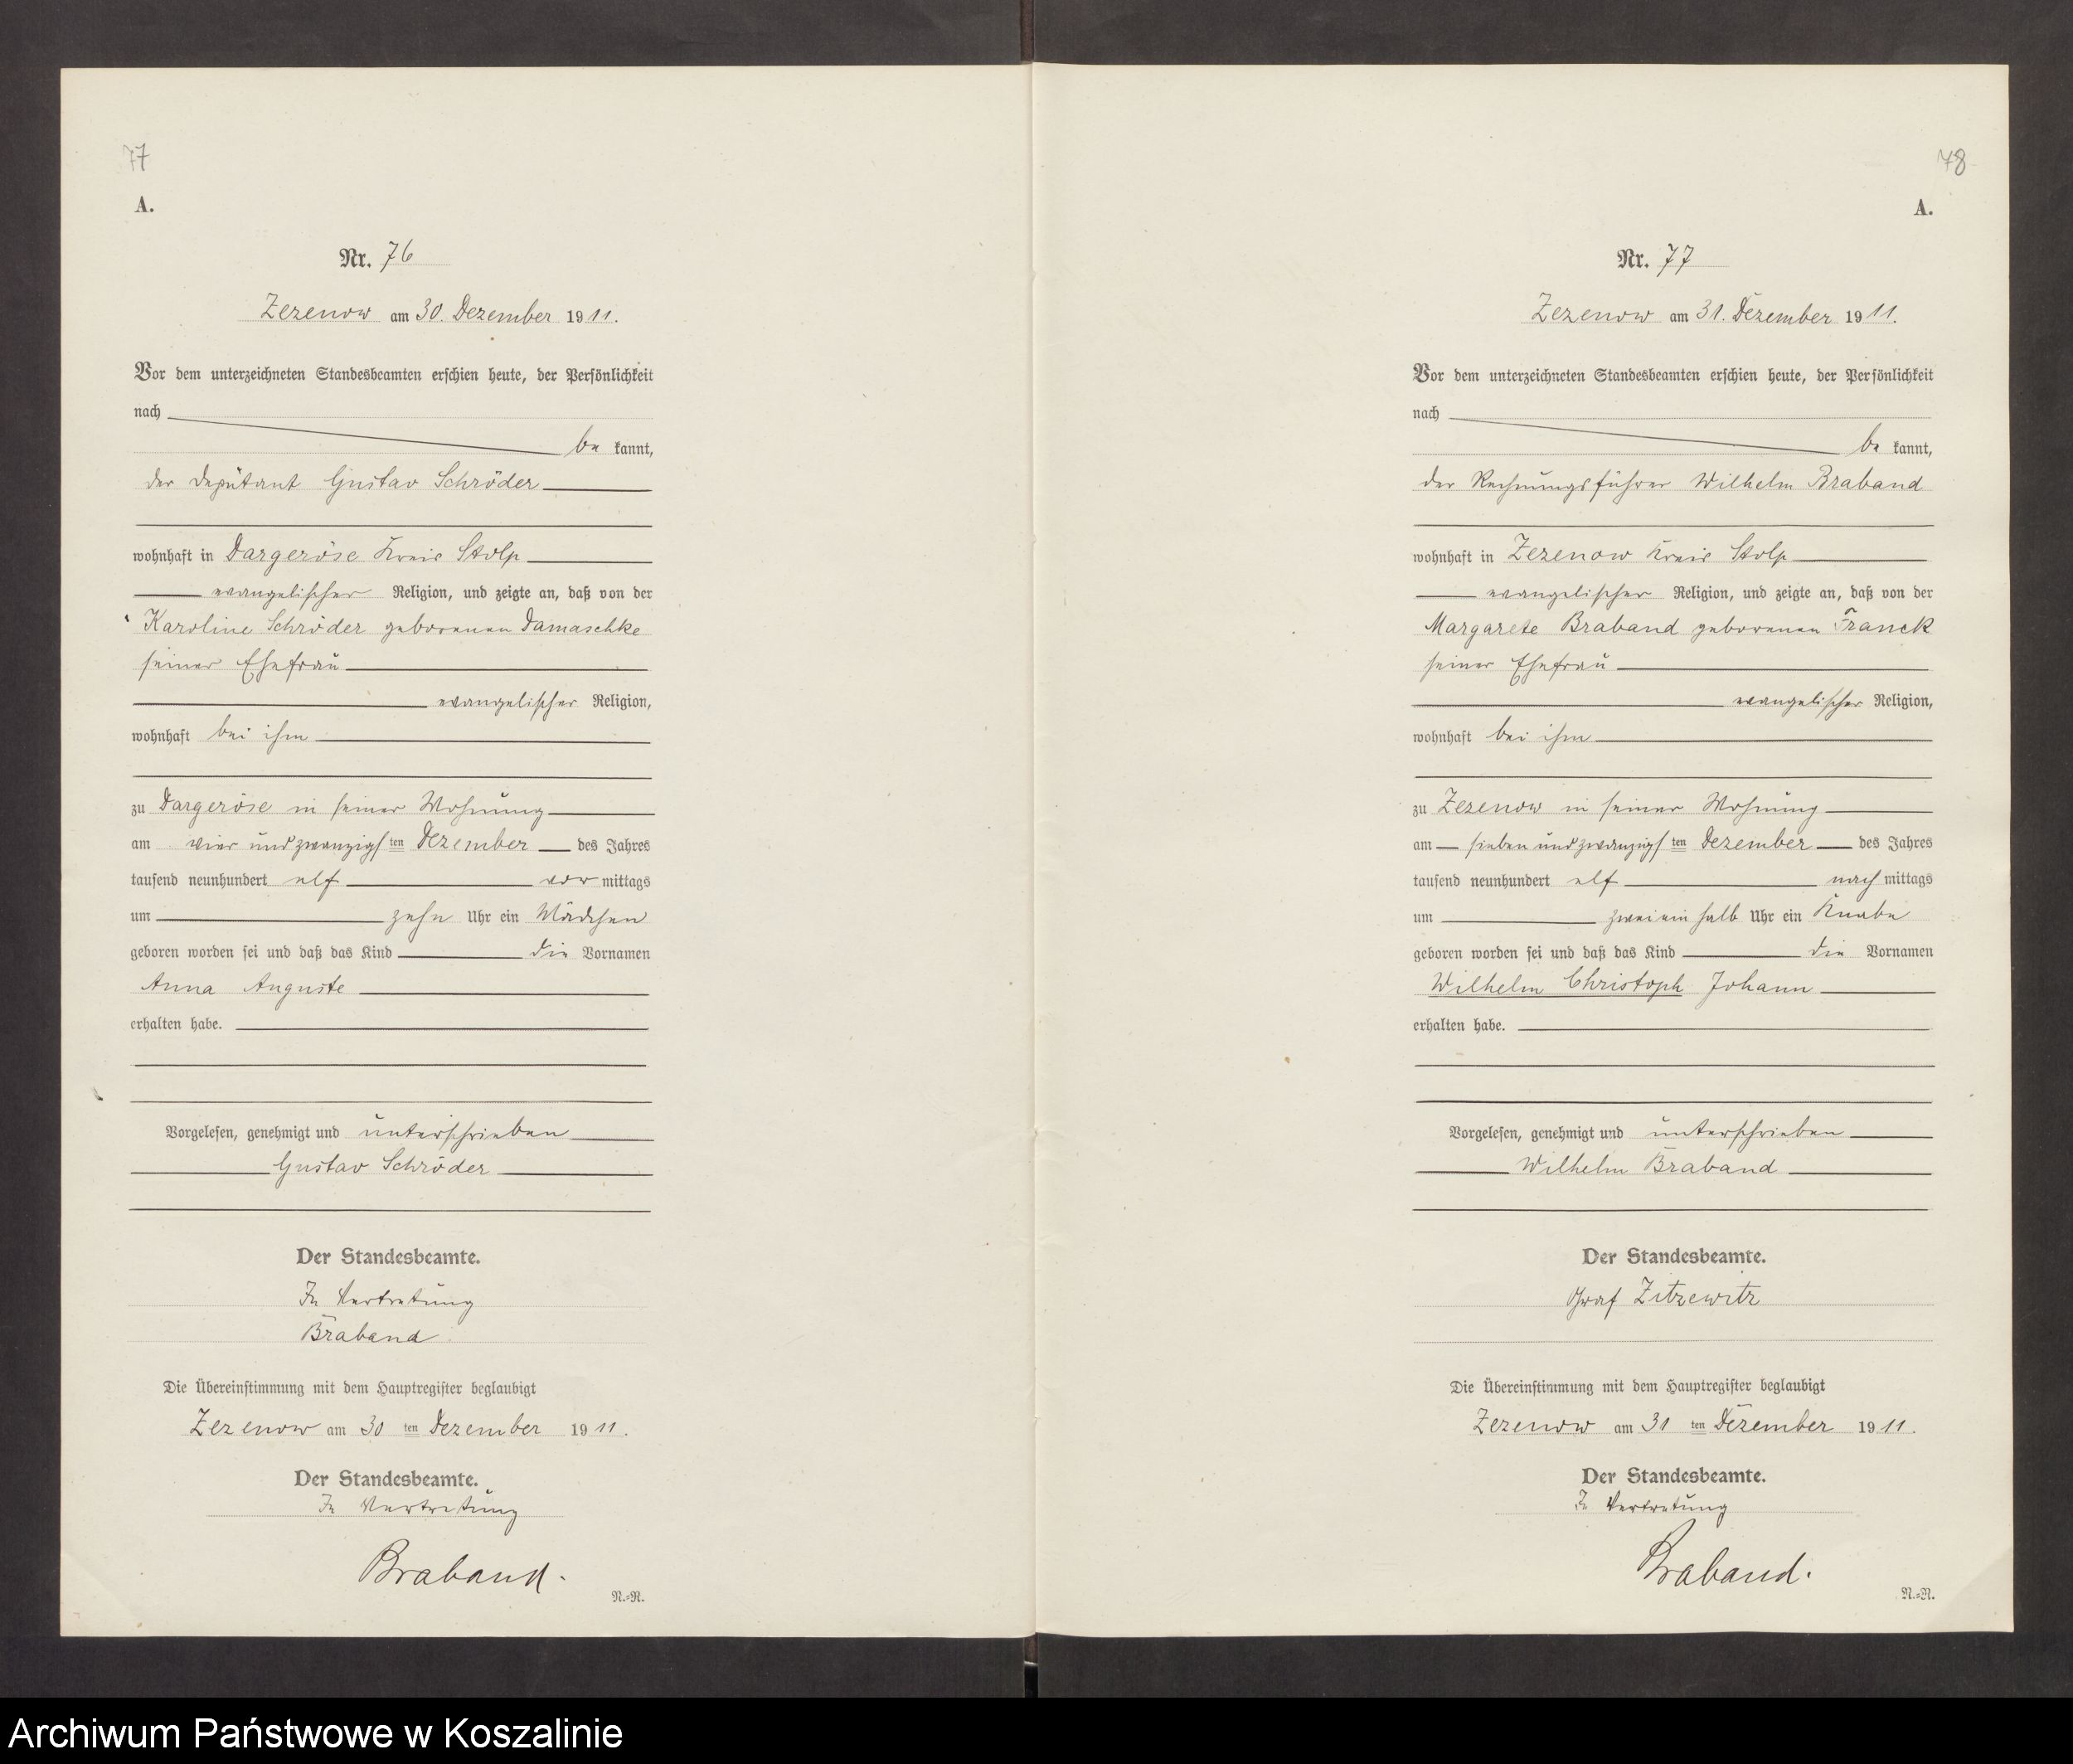 77
A.
Nr. 76
Zezenow am 30. Dezember 1911.
Vor dem unterzeichneten Standesbeamten erschien heute, der Persönlichkeit
nach
be kannt,
der Deputant Gustav Schröder
wohnhaft in Dargeröse Kreis Stolp
evangelischer Religion, und zeigte an, daß von der
Karoline Schröder geborenen Damaschke
seiner Ehefrau
evangelischer Religion,
wohnhaft bei ihm
zu Dargeröse in seiner Wohnung
am vier und zwanzigs ten Dezember des Jahres
tausend neunhundert elf vor mittags
um zehn Uhr ein Mädchen
geboren worden sei und daß das Kind die Vornamen
Anna Auguste
erhalten habe.
Vorgelesen, genehmigt und unterschrieben
Gustav Schröder
Der Standesbeamte.
In Vertretung
Braband
Die Übereinstimmung mit dem Hauptregister beglaubigt
Zezenow am 30 ten Dezember 1911.
Der Standesbeamte.
In Vertretung
Braband.
N.=R.
78
A.
Nr. 77
Zezenow am 31. Dezember 1911.
Vor dem unterzeichneten Standesbeamten erschien heute, der Persönlichkeit
nach
be kannt,
der Rechnungsführer Wilhelm Braband
wohnhaft in Zezenow Kreis Stolp
evangelischer Religion, und zeigte an, daß von der
Margarete Braband geborenen Franck
seiner Ehefrau
evangelischer Religion,
wohnhaft bei ihm
zu Zezenow in seiner Wohnung
am sieben und zwanzigs ten Dezember des Jahres
tausend neunhundert elf nach mittags
um zwei ein halb Uhr ein Knabe
geboren worden sei und daß das Kind die Vornamen
Wilhelm Christoph Johann
erhalten habe.
Vorgelesen, genehmigt und unterschrieben
Wilhelm Braband
Der Standesbeamte.
Graf Zitzewitz
Die Übereinstimmung mit dem Hauptregister beglaubigt
Zezenow am 31 ten Dezember 1911.
Der Standesbeamte.
In Vertretung
Braband.
N.=R.
Archiwum Państwowe w Koszalinie